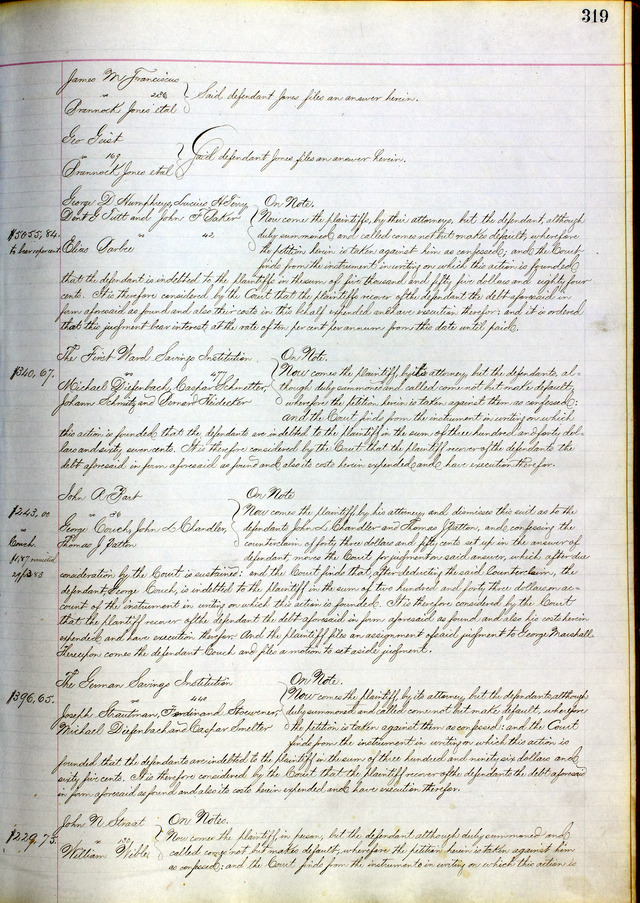 319
James M Franciscus
" 236 Said defendant Jones files an answer herein.
Brannock Jones etal
Geo Geist
" 169 Said defendant Jones files an answer herein.
Brannock Jones etal
George D Humphreys, Lucius H Terry On Note.
Dent G Tutt and John F Parker Now come the plaintiffs, by their attorneys, but the defendant, although
$5055,84. " 42 duly summoned and called comes not but makes default, wherefore
Elias Parke the petition herein is taken against him as confessed; and the Court
finds from the instrument in writing on which this action is founded
that the defendant is indebted to the plaintiffs in the sum of five thousand and fifty five dollars and eighty four
cents. It is therefore considered by the Court that the plaintiffs recover of the defendant the debt aforesaid in
form aforesaid as found and also their costs in this behalf expended and have execution therefor; and it is ordered
that this judgment bear interest at the rate of ten per cent per annum from this date until paid.
The First Ward Savings Institution On Note.
$340,67. " 477 Now comes the plaintiff, by its attorney but the defendants, al-
Michael Diefenbach, Caspar Schnetter, though duly summoned and called come not but make default,
Johann Schmitz and Bernard Heidecker wherefore the petition herein is taken against them as confessed:
and the Court finds from the instrument in writing on which
this action is founded that the defendants are indebted to the plaintiff in the sum of three hundred and forty dol-
lars and sixty seven cents. It is therefore considered by the Court that the plaintiff recover of the defendants the
debt aforesaid in form aforesaid as found and also its costs herein expended and have execution therefor.
John A Hart On Note
$243,00 " 50 Now comes the plaintiff, by his attorney, and dismisses this suit as to the
George Couch, John L Chandler, defendants John L Chandler and Thomas J Patton, and, confessing the
Couch Thomas J Patton counterclaim of forty three dollars and fifty cents set up in the answer of
defendant, moves the Court for judgment on said answer, which after due
consideration by the Court is sustained: and the Court finds that, after deducting the said Counterclaim, the
defendant, George Couch, is indebted to the plaintiff in the sum of two hundred and forty three dollars on ac-
count of the instrument in writing on which this action is founded. It is therefore considered by the Court
that the plaintiff recover of the defendant the debt aforesaid in form aforesaid as found and also his costs herein
expended and have execution therefor. And the plaintiff files an assignment of said judgment to George Marshall.
Thereupon comes the defendant Couch and files a motion to set aside judgment.
The German Savings Institution On Note.
$396,65. " 440 Now comes the plaintiff, by its attorney, but the defendants, although
Joseph Strautman, Ferdinand Stoewener, duly summoned and called come not but make default, wherefore
Michael Diefenbach and Caspar Smelter the petition is taken against them as confessed: and the Court
finds from the instrument in writing on which this action is
founded that the defendants are indebted to the plaintiff in the sum of three hundred and ninety six dollars and
sixty five cents. It is therefore considered by the Court that the plaintiff recover of the defendants the debt aforesaid
in form aforesaid as found and also its costs herein expended and have execution therefor.
John N Straat On Notes.
$229,75. " Now comes the plaintiff, in person, but the defendant although duly summoned and
William Wible called comes not but makes default, wherefore the petition herein is taken against him
as confessed: and the Court finds from the instruments in writing on which this action is